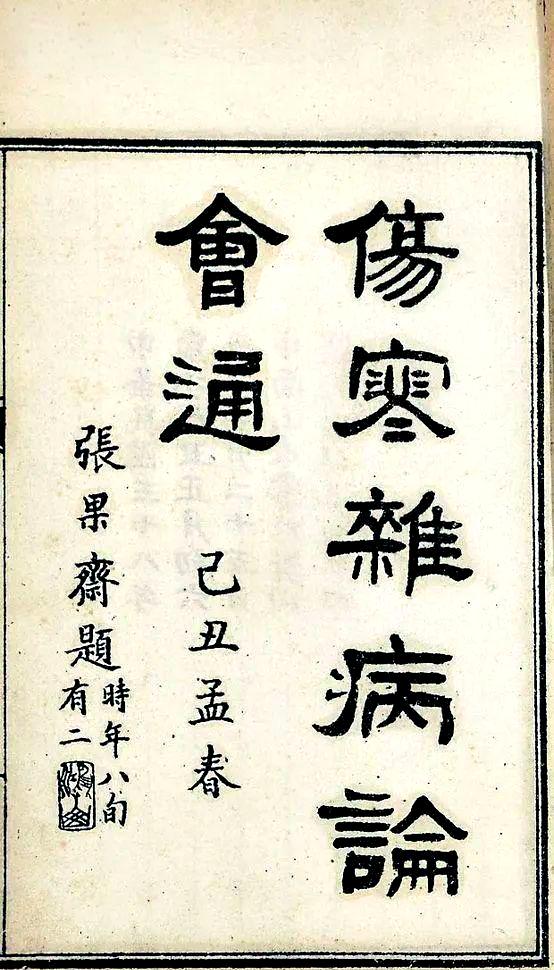 傷寒雜病論
會通
己丑孟春
張果齋題
時年八旬
有二